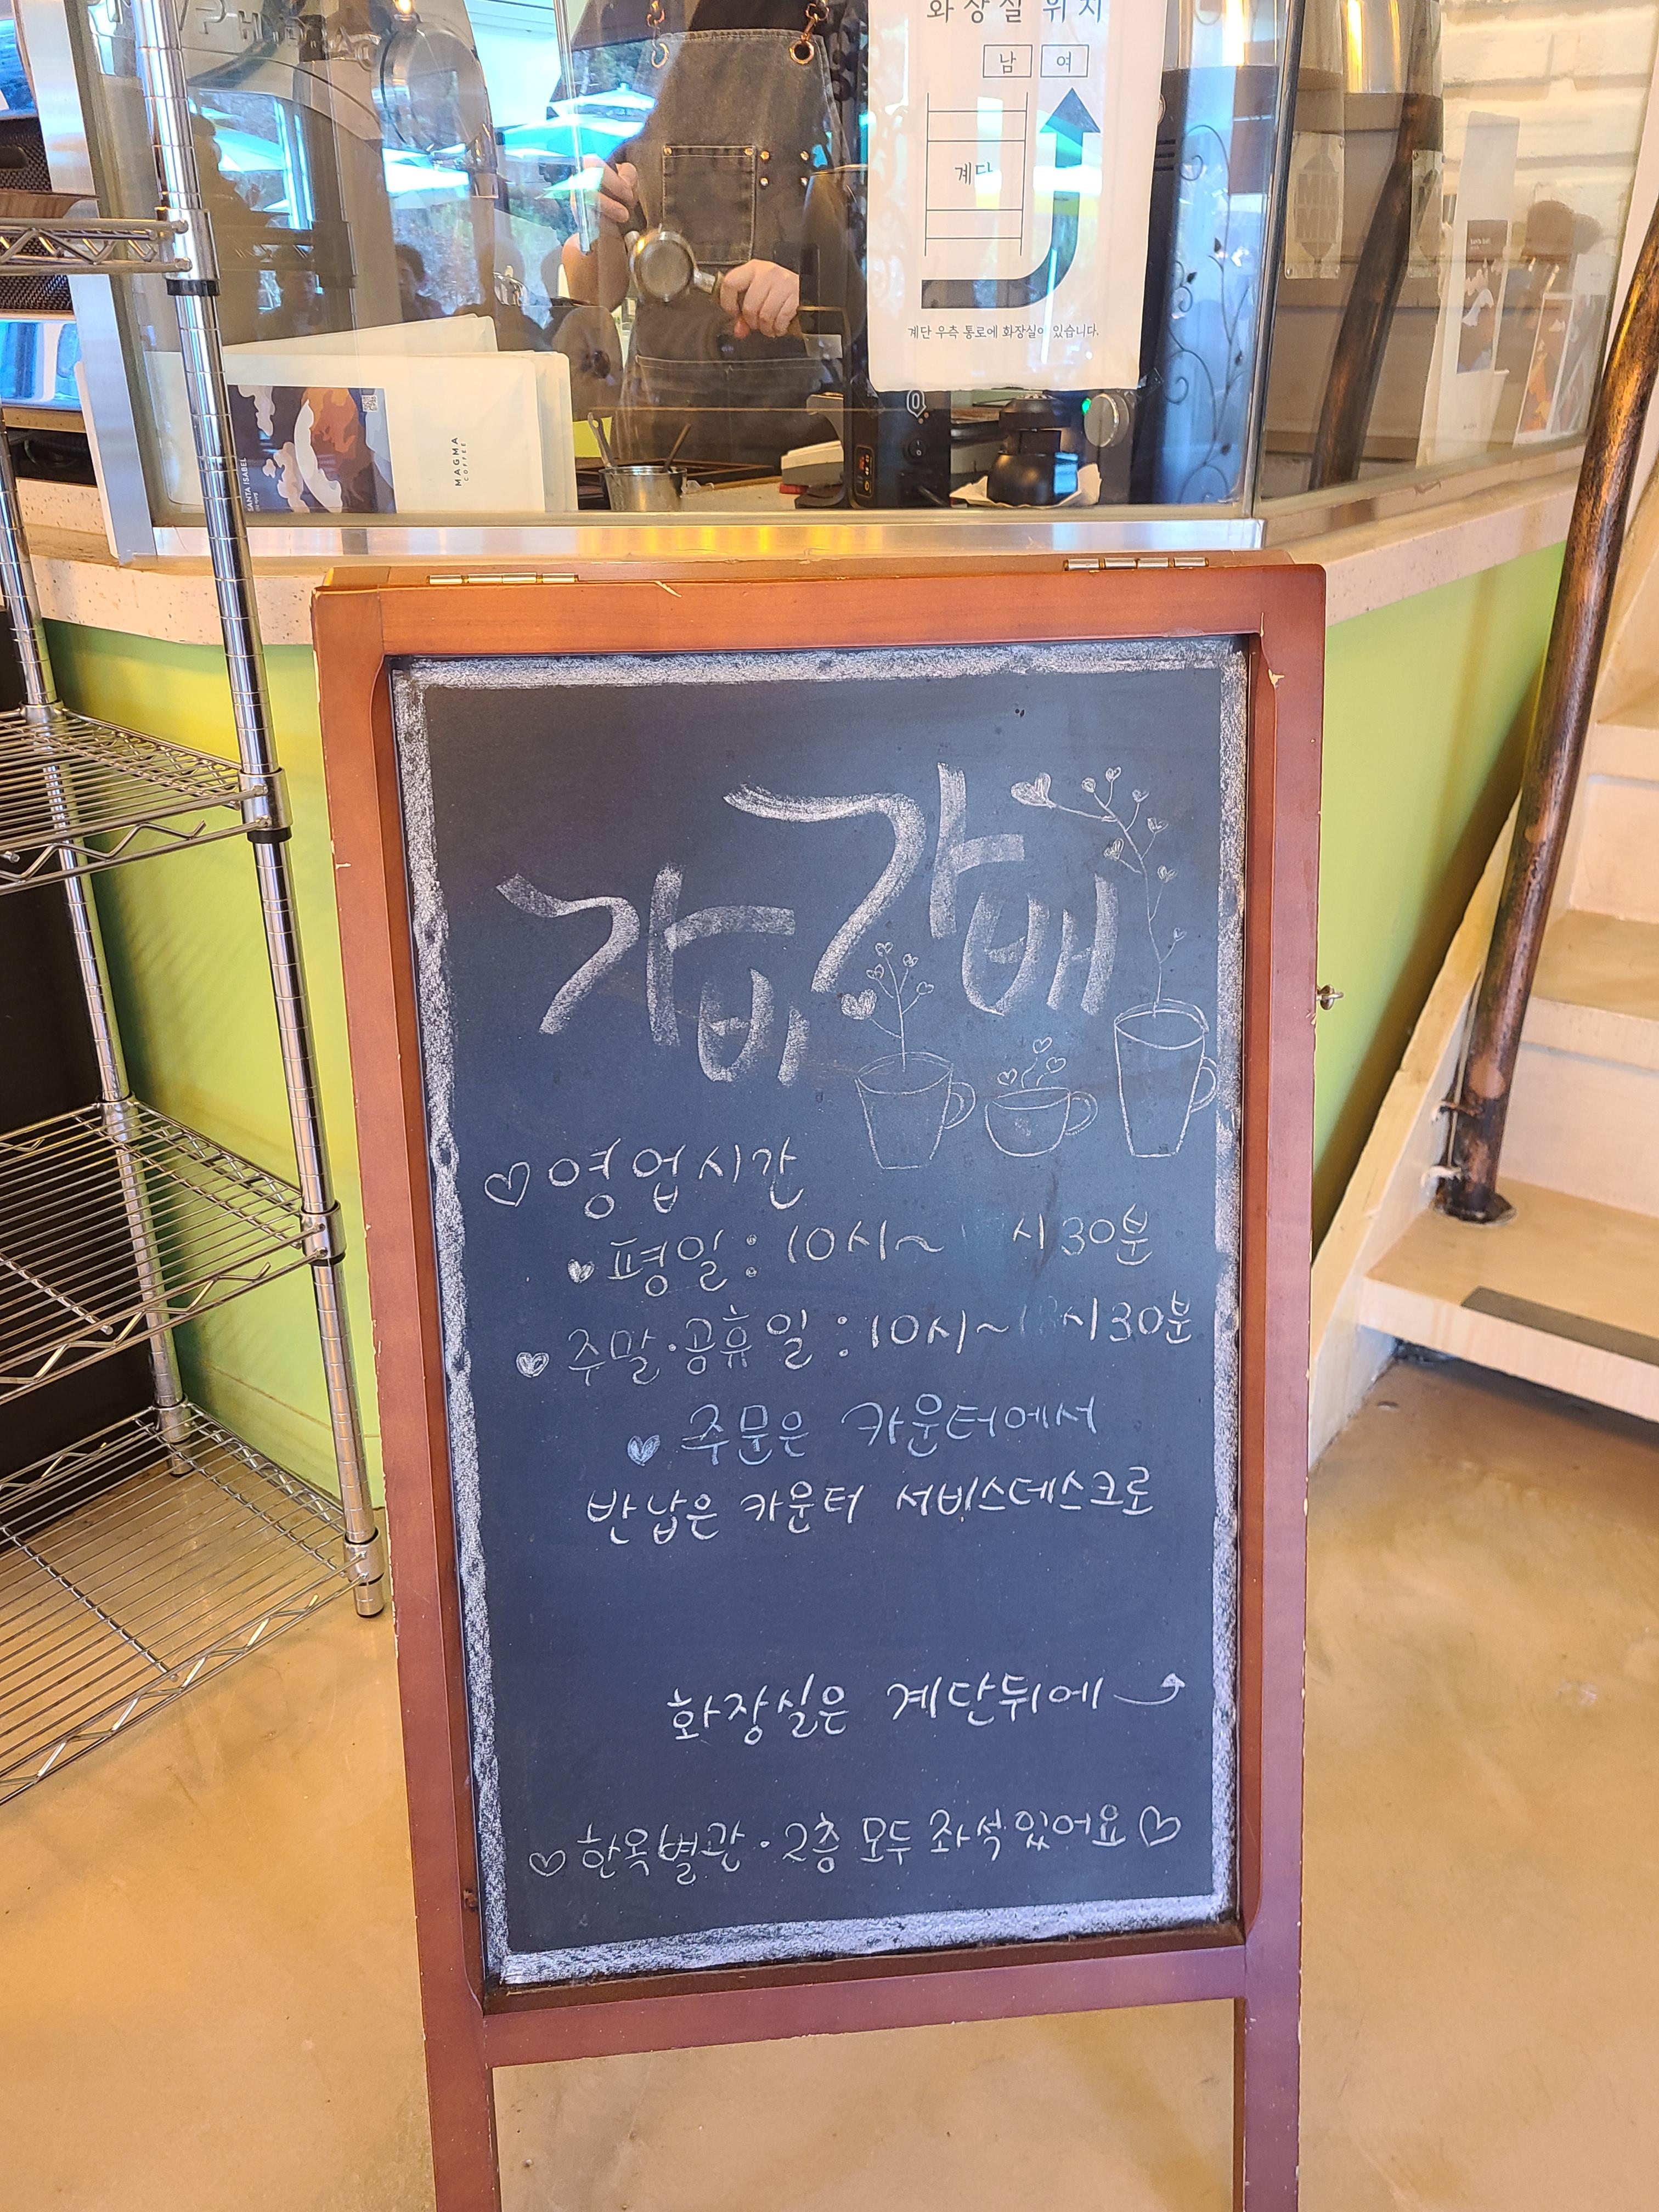 화장실 위치
남 여
계단
계단 우측 통로에 화장실이 있습니다.
SANTA ISABEL
MAGMA
COFFEE
가비가배
♡영업시간
♥평일: 10시~ 시30분
♥주말·공휴일:10시~ 시30분
♥주문은 카운터에서
반납은 카운터 서비스데스크로
화장실은 계단뒤에
♡한옥별관·2층 모두 좌석있어요♡